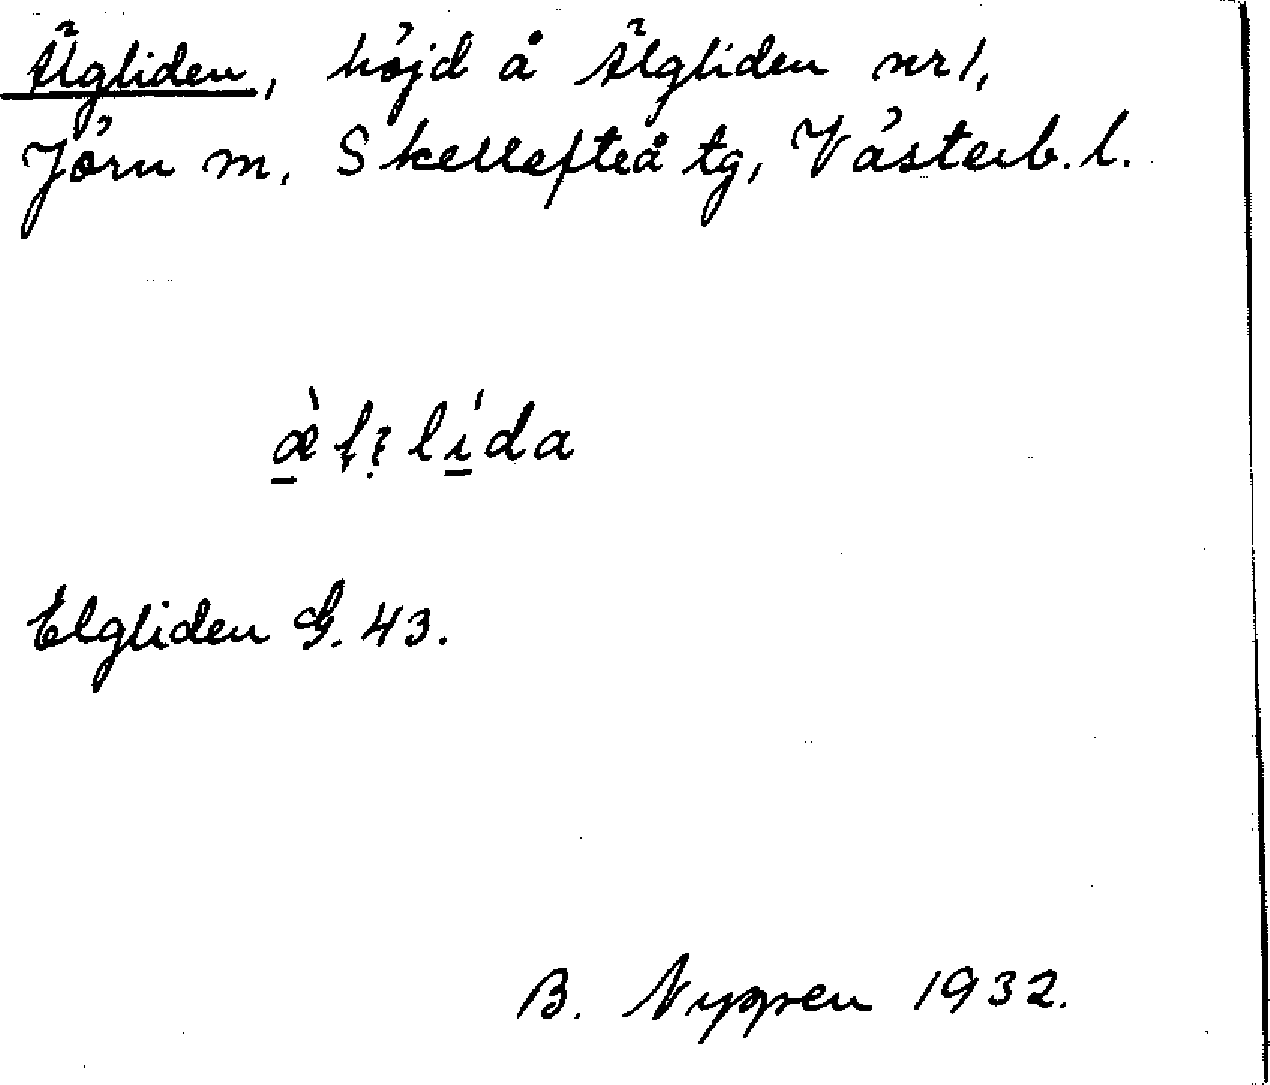 Älgliden, höjd å Älgliden nr 1,
Jörn m. Skellefteå tg, Västerb. l.
Elgliden G. 43.
B. Nyppen 1932.